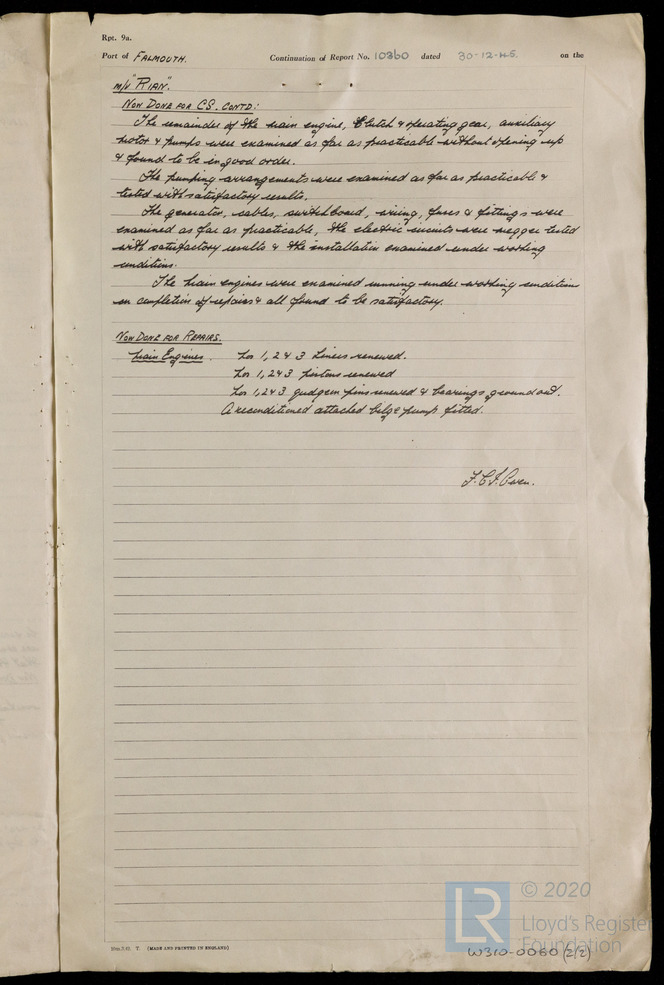 Rpt. 9a.
Port of FALMOUTH. Continuation of Report No. 10360 dated 30-12-45. on the
m/v "RIAN".
NOW DONE FOR C.S. CONTD:
The remainder of the main engine, Clutch & operating gear, auxiliary
motor & pumps were examined as far as practicable without opening up
& found to be in good order.
The pumping arrangements were examined as far as practicable &
tested with satisfactory results.
The generator, cables, switchboard, wiring, fuses & fittings were
examined as far as practicable, the electric circuits were megger tested
with satisfactory results & the installation examined under working
conditions.
The main engines were examined running under working conditions
on completion of repairs & all found to be satisfactory.
NOW DONE FOR REPAIRS.
Main Engines. Nos 1, 2 & 3 Liners renewed.
Nos 1, 2 & 3 pistons renewed
Nos 1, 2 & 3 gudgeon pins renewed & bearings ground out.
A reconditioned attached bilge pump fitted.
F. C. J. Owen.
T. (MADE AND PRINTED IN ENGLAND)
LR © 2020
Lloyd's Register
Foundation
W310-0060 (2/2)